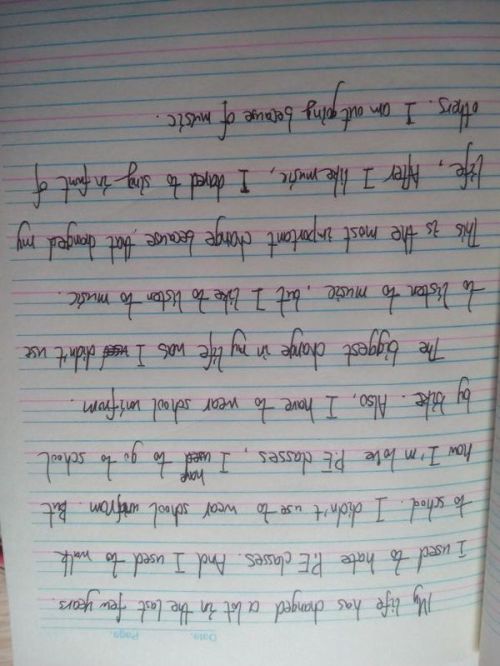 Date.
Page.
My life has changed a lot in the last few years.
I used to hate P.E classes. And I used to walk
to school. I didn't use to wear school unifrom. But
now I'm love P.E classes, I have to go to school
by bike. Also, I have to wear school unifrom.
The biggest change in my life was I didn't use
to listen to music, but I like to listen to music.
This is the most inportant change because that changed my
life, After I like music, I dared to sing in front of
others. I am out going because of music.